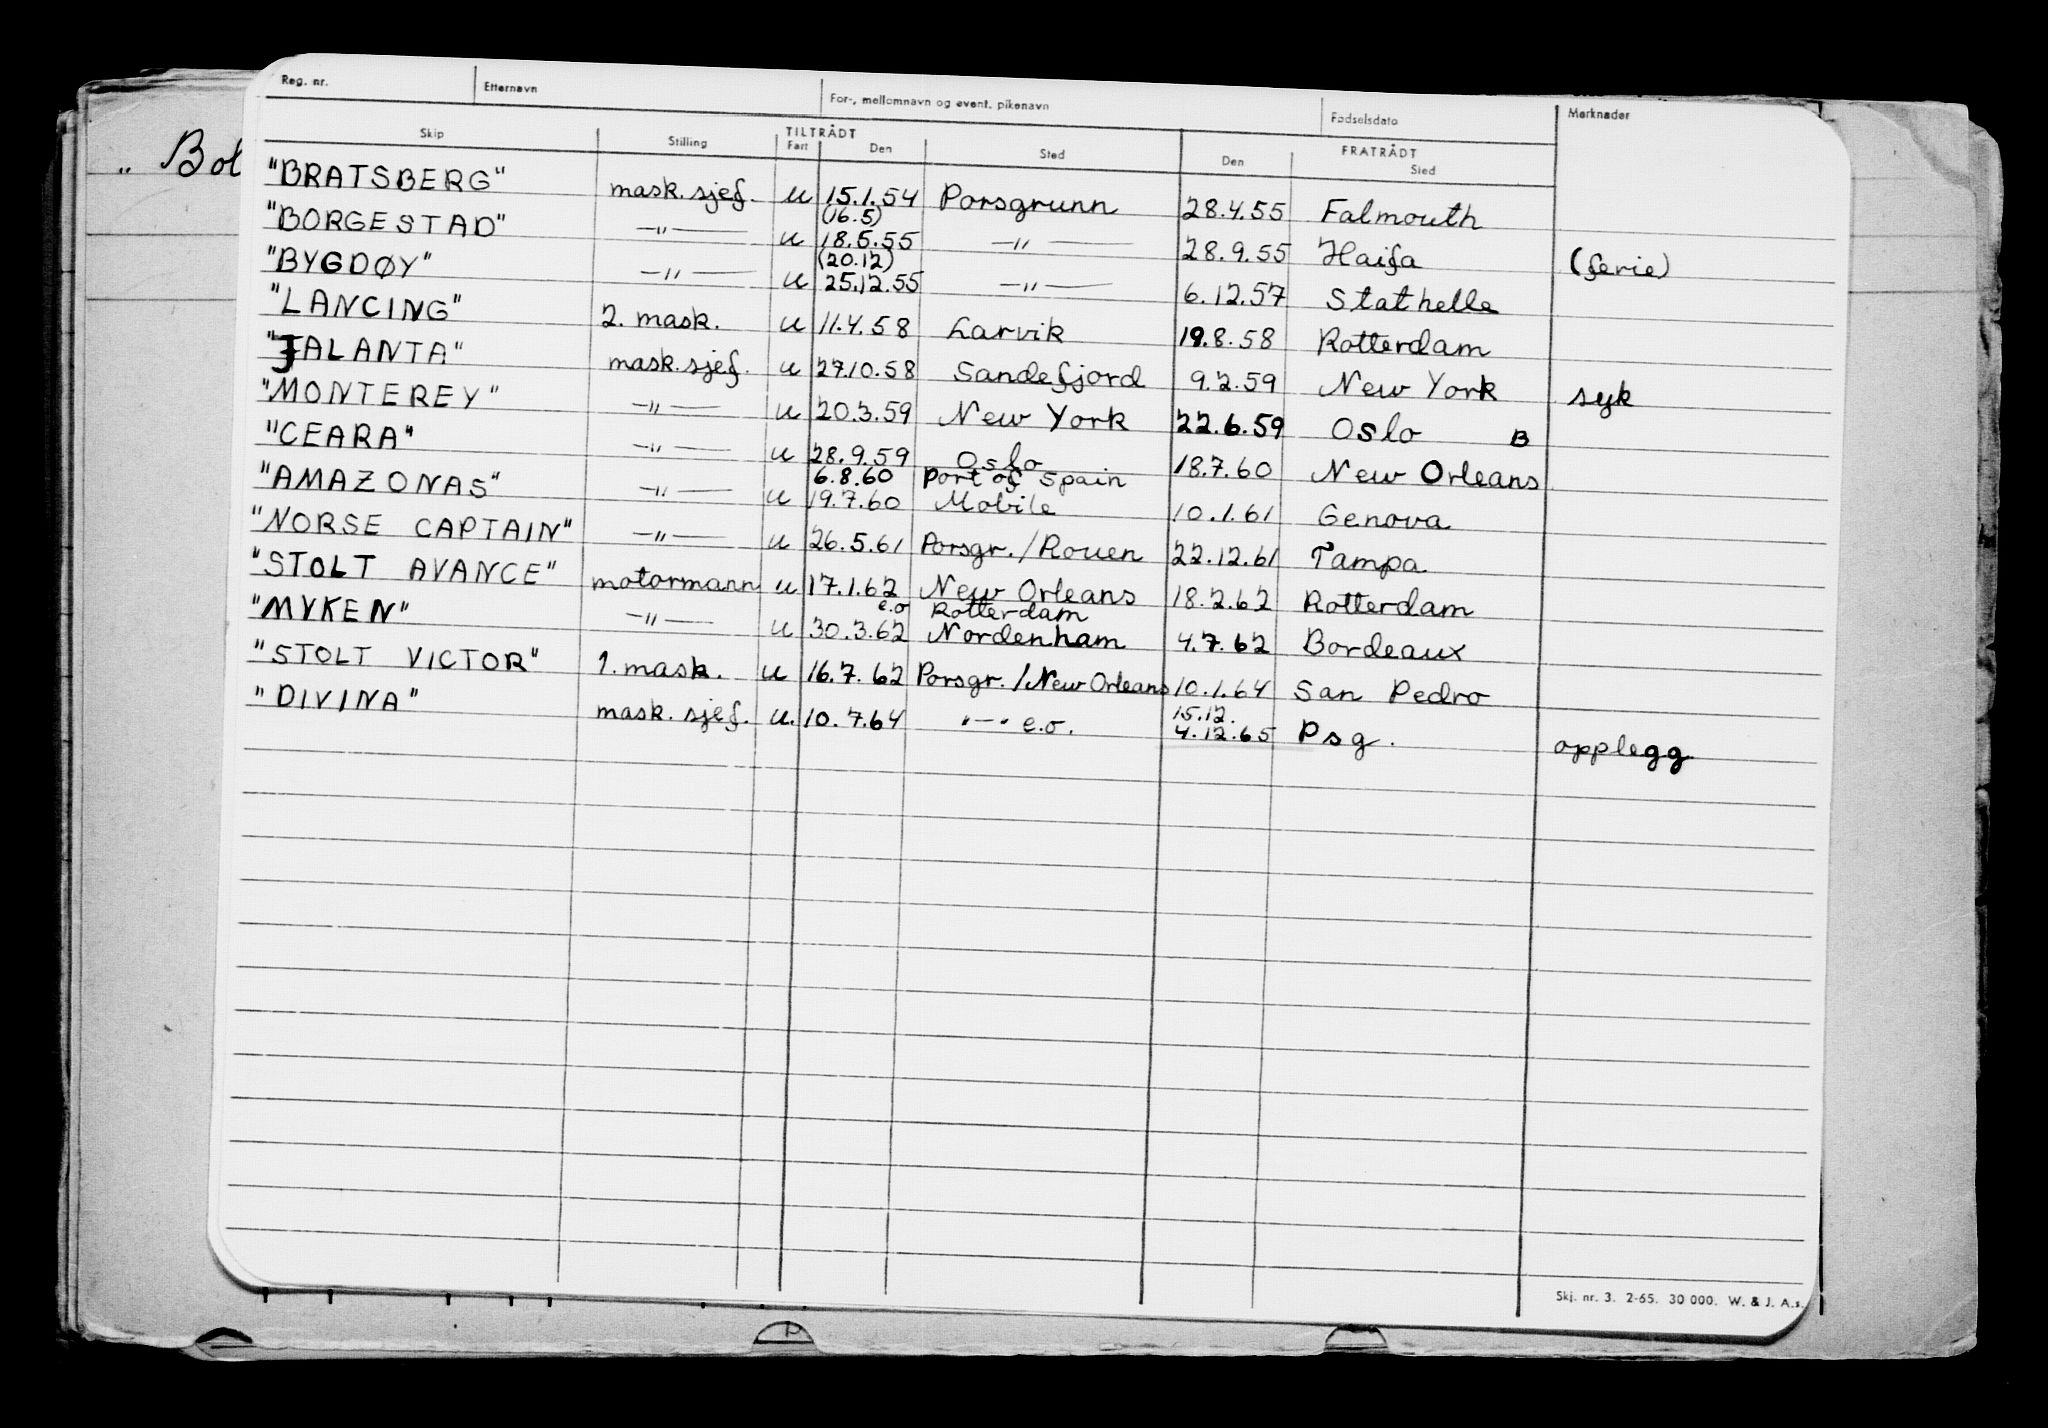 Reg. nr. Etternavn For-, mellomnavn og event. pikenavn Fødselsdato Merknader
Skip Stilling TILTRÅDT Fart Den Sted FRATRÅDT Den Sted
„ Bol
"BRATSBERG" mask. sjef. u 15.1.54 Porsgrunn 28.4.55 Falmouth
(16.5)
"BORGESTAD" —„— u 18.5.55 —„— 28.9.55 Haifa (ferie)
(20.12)
"BYGDØY" —„— u 25.12.55 —„— 6.12.57 Stathelle
"LANCING" 2. mask. u 11.4.58 Larvik 19.8.58 Rotterdam
"JALANTA" mask. sjef. u 27.10.58 Sandefjord 9.2.59 New York syk
"MONTEREY" —„— u 20.3.59 New York 22.6.59 Oslo B
"CEARA" —„— u 28.9.59 Oslo 18.7.60 New Orleans
6.8.60 Port of Spain
"AMAZONAS" —„— u 19.7.60 Mobile 10.1.61 Genova
"NORSE CAPTAIN" —„— u 26.5.61 Porsgr./Rouen 22.12.61 Tampa
"STOLT AVANCE" motormann u 17.1.62 New Orleans 18.2.62 Rotterdam
e.o Rotterdam
"MYKEN" —„— u 30.3.62 Nordenham 4.7.62 Bordeaux
"STOLT VICTOR" 1. mask. u 16.7.62 Porsgr./New Orleans 10.1.64 San Pedro
15.12.
"DIVINA" mask. sjef. u. 10.7.64 "—" e.o. 4.12.65 Psg. opplegg
Skj. nr. 3. 2-65. 30 000. W. & J. A.s.